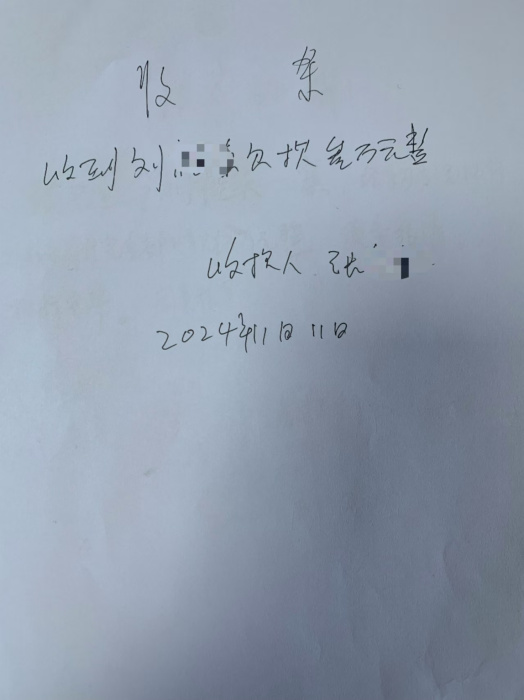 收条
收到刘欠款叁万元整
收款人 张
2024年11月11日